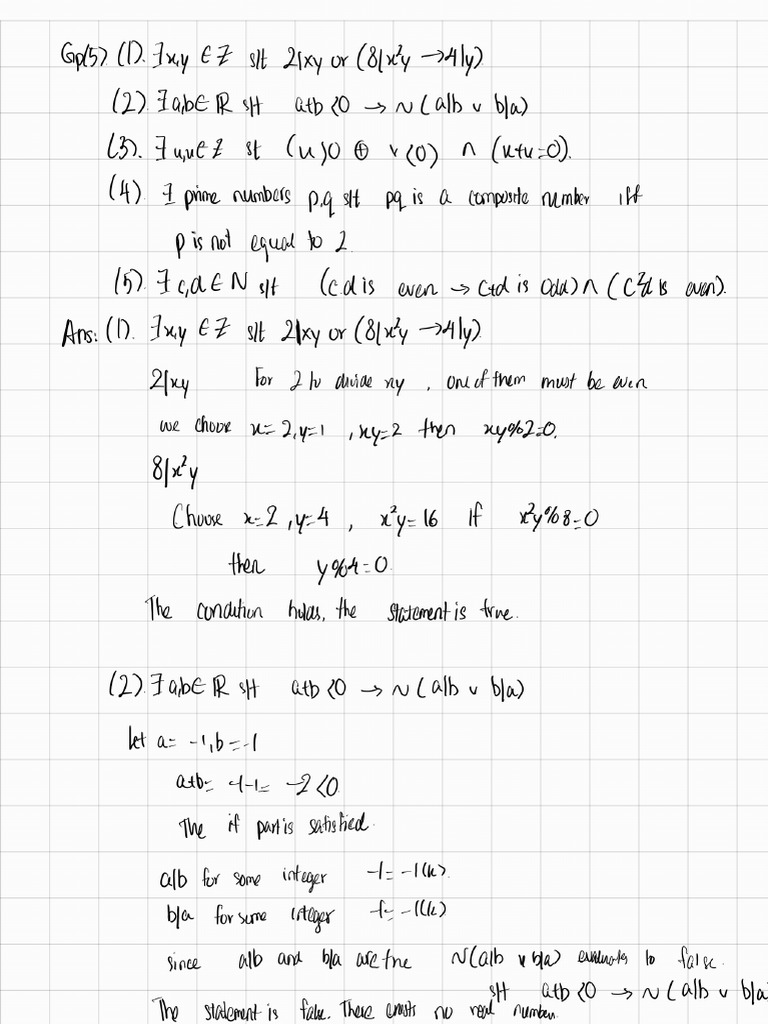 Gp(5) (1). ∃x,y ∈ Z s/t 2|xy or (8|x²y → 4|y)
(2). ∃a,b ∈ R s/t a+b<0 → ~(a|b ∨ b|a)
(3). ∃u,v ∈ Z st (u>0 ⊕ v<0) ∧ (u+v=0).
(4) ∃ prime numbers p,q s/t pq is a composite number iff
p is not equal to 2.
(5). ∃c,d ∈ N s/t (c.d is even → c+d is odd) ∧ (c²d is even).
Ans: (1). ∃x,y ∈ Z s/t 2|xy or (8|x²y → 4|y)
2|xy For 2 to divide xy, one of them must be even
we choose x=2, y=1, xy=2 then xy%2=0.
8|x²y
Choose x=2, y=4, x²y=16 If x²y%8=0
then y%4=0.
The condition holds, the statement is true.
(2). ∃a,b ∈ R s/t a+b<0 → ~(a|b ∨ b|a)
let a= -1, b=-1
a+b= -1-1= -2<0.
The if part is satisfied.
a|b for some integer -1= -1(k).
b|a for some integer -1= -1(k)
since a|b and b|a are true ~(a|b ∨ b|a) evaluates to false.
The statement is false. There exists no real number. s/t a+b<0 → ~(a|b ∨ b|a